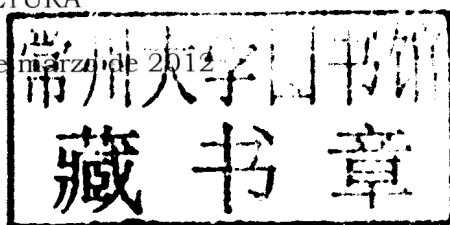 LTURA
e marzo de 2012
常州大学图书馆
藏书章